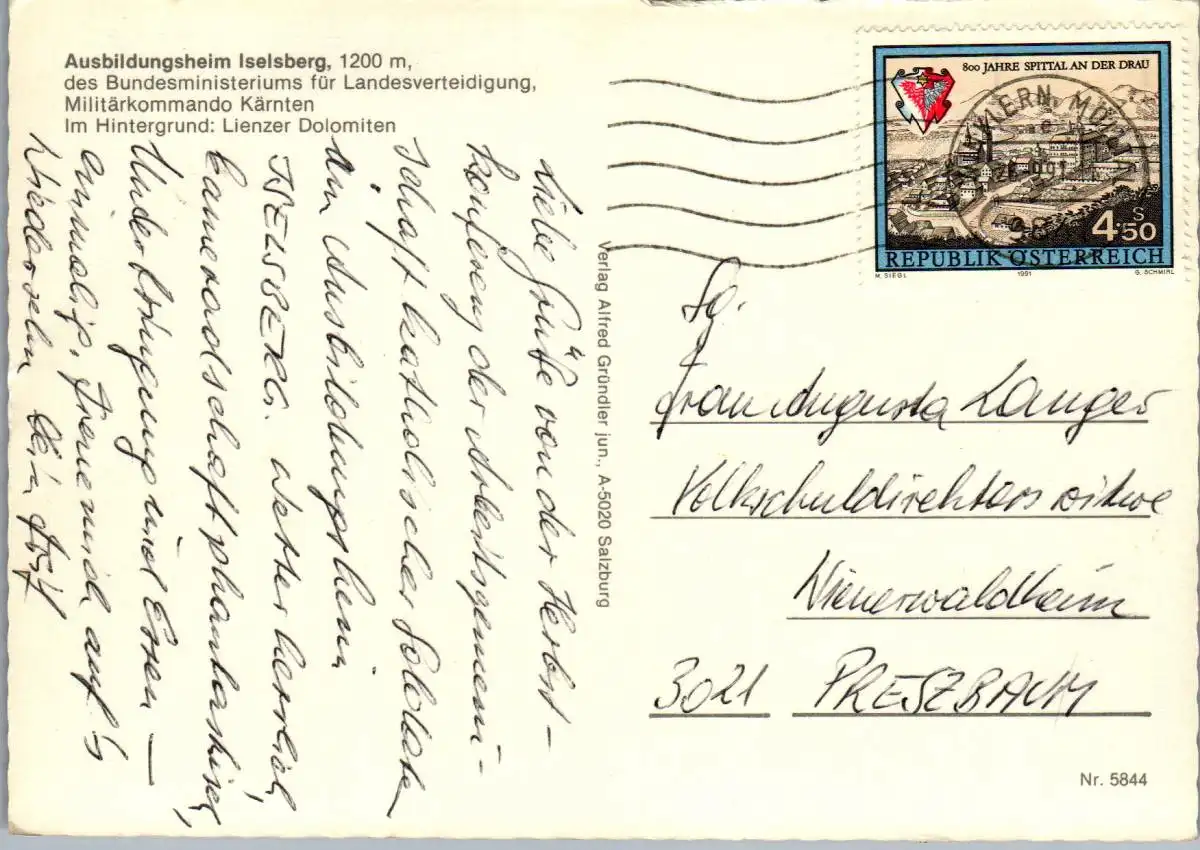 Ausbildungsheim Iselsberg, 1200 m,
des Bundesministeriums für Landesverteidigung,
Militärkommando Kärnten
Im Hintergrund: Lienzer Dolomiten
Liebe Grüße von der Herbst-
konferenz der Arbeitsgemein-
schaft katholischer Soldaten
im Ausbildungsheim
ISELSBERG. Wetter herrlich,
Kameradschaft phantastisch,
Unterbringung und Essen —
einmalig, freue mich auf's
Wiedersehn Dein
Verlag Alfred Gründler jun., A-5020 Salzburg
800 JAHRE SPITTAL AN DER DRAU
S
4.50
REPUBLIK ÖSTERREICH
M. SIEGL 1991 G. SCHMIRL
Frau Augusta Langer
Volkschuldirektorswitwe
Wienerwaldheim
3021 PRESZBAUM
Nr. 5844